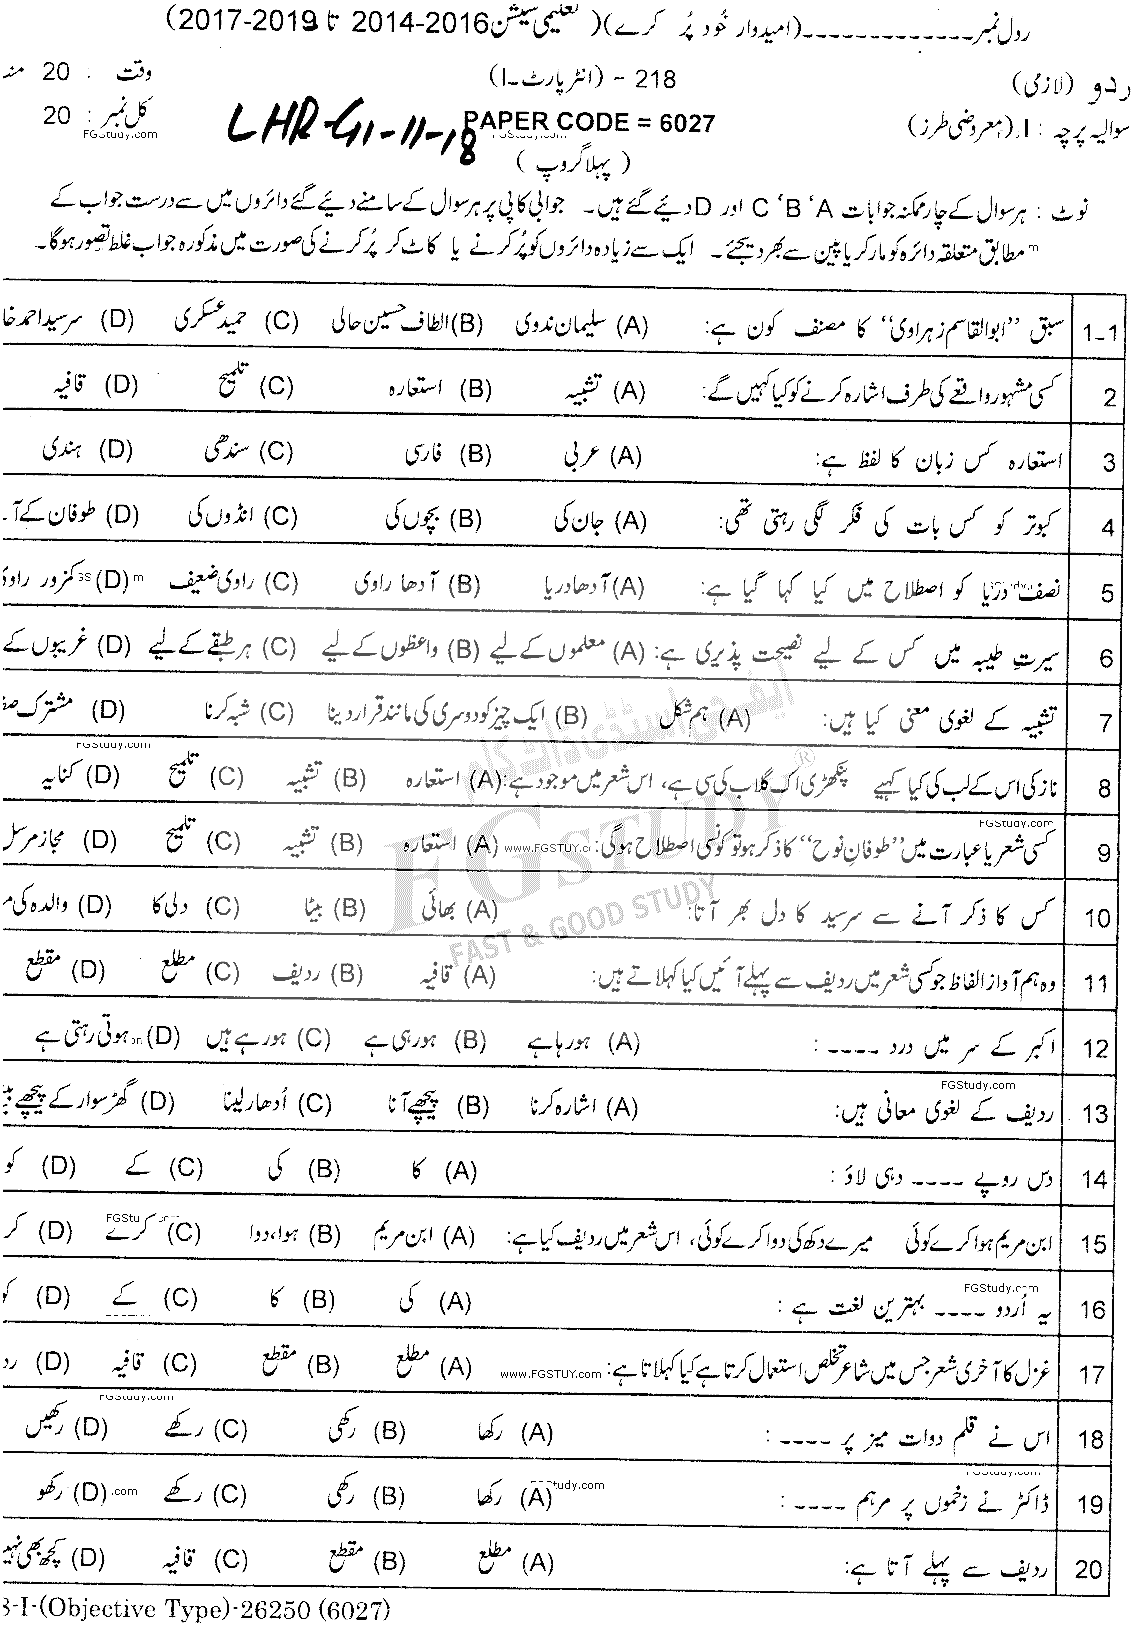 رول نمبر ـــــــــــــــ (امیدوار خود پُر کرے) (تعلیمی سیشن 2016-2014 تا 2019-2017)
اردو (لازمی) 218 - (انٹر پارٹ - I) وقت : 20
سوالیہ پرچہ : I (معروضی طرز) PAPER CODE = 6027 LHR-G1-11-18 کل نمبر : 20
FGStudy.com FGStudy.com
(پہلا گروپ)
نوٹ : ہر سوال کے چار ممکنہ جوابات A ‘B ‘C اور D دیئے گئے ہیں۔ جوابی کاپی پر ہر سوال کے سامنے دیئے گئے دائروں میں سے درست جواب کے
مطابق متعلقہ دائرہ کو مارکر یا پین سے بھر دیجئے۔ ایک سے زیادہ دائروں کو پُر کرنے یا کاٹ کر پُر کرنے کی صورت میں مذکورہ جواب غلط تصور ہوگا۔
1-1 سبق ”ابوالقاسم زہراوی“ کا مصنف کون ہے: (A) سلیمان ندوی (B) الطاف حسین حالی (C) حمید عسکری (D) سرسید احمد خا
2 کسی مشہور واقعے کی طرف اشارہ کرنے کو کیا کہیں گے: (A) تشبیہ (B) استعارہ (C) تلمیح (D) قافیہ
3 استعارہ کس زبان کا لفظ ہے: (A) عربی (B) فارسی (C) سندھی (D) ہندی
4 کبوتر کو کس بات کی فکر لگی رہتی تھی: (A) جان کی (B) بچوں کی (C) انڈوں کی (D) طوفان کے آ
5 نصف دریا کو اصطلاح میں کیا کہا گیا ہے: (A) آدھا دریا (B) آدھا راوی (C) راوی ضعیف (D) کمزور راوی
6 سیرتِ طیبہ میں کس کے لیے نصیحت پذیری ہے: (A) معلموں کے لیے (B) واعظوں کے لیے (C) ہر طبقے کے لیے (D) غریبوں کے
7 تشبیہ کے لغوی معنی کیا ہیں: (A) ہم شکل (B) ایک چیز کو دوسری کی مانند قرار دینا (C) شبہ کرنا (D) مشترک صف
FGStudy.com
8 ناز کی اس کے لب کی کیا کہیے پنکھڑی اک گلاب کی سی ہے، اس شعر میں موجود ہے: (A) استعارہ (B) تشبیہ (C) تلمیح (D) کنایہ
FGStudy.com
9 کسی شعر یا عبارت میں ”طوفانِ نوح“ کا ذکر ہو تو کونسی اصطلاح ہوگی: www.FGSTUY.c (A) استعارہ (B) تشبیہ (C) تلمیح (D) مجاز مرسل
10 کس کا ذکر آنے سے سرسید کا دل بھر آتا: (A) بھائی (B) بیٹا (C) دلی کا (D) والدہ کی م
11 وہ ہم آواز الفاظ جو کسی شعر میں ردیف سے پہلے آئیں کیا کہلاتے ہیں: (A) قافیہ (B) ردیف (C) مطلع (D) مقطع
12 اکبر کے سر میں درد ۔۔۔۔ : (A) ہو رہا ہے (B) ہو رہی ہے (C) ہو رہے ہیں (D) ہوتی رہتی ہے
FGStudy.com
13 ردیف کے لغوی معانی ہیں: (A) اشارہ کرنا (B) پیچھے آنا (C) اُدھار لینا (D) گھڑ سوار کے پیچھے
14 دس روپے ۔۔۔۔ دہی لاؤ : (A) کا (B) کی (C) کے (D) کو
15 ابن مریم ہوا کرے کوئی میرے دکھ کی دوا کرے کوئی، اس شعر میں ردیف کیا ہے: (A) ابن مریم (B) ہوا، دوا (C) کرے (D) کر
FGStudy.com
16 یہ اُردو ۔۔۔۔ بہترین لغت ہے : (A) کی (B) کا (C) کے (D) کو
17 غزل کا آخری شعر جس میں شاعر تخلص استعمال کرتا ہے کیا کہلاتا ہے: www.FGSTUY.com (A) مطلع (B) مقطع (C) قافیہ (D) رد
FGStudy.com
18 اس نے قلم دوات میز پر ۔۔۔۔ : (A) رکھا (B) رکھی (C) رکھے (D) رکھیں
FGStudy.com
19 ڈاکٹر نے زخموں پر مرہم ۔۔۔۔ : (A) رکھا (B) رکھی (C) رکھے (D) رکھو
20 ردیف سے پہلے آتا ہے: (A) مطلع (B) مقطع (C) قافیہ (D) کچھ بھی نہیں
3-I-(Objective Type)-26250 (6027)
ایف جی اسٹڈی ڈاٹ کام
FGSTUDY ®
FAST & GOOD STUDY